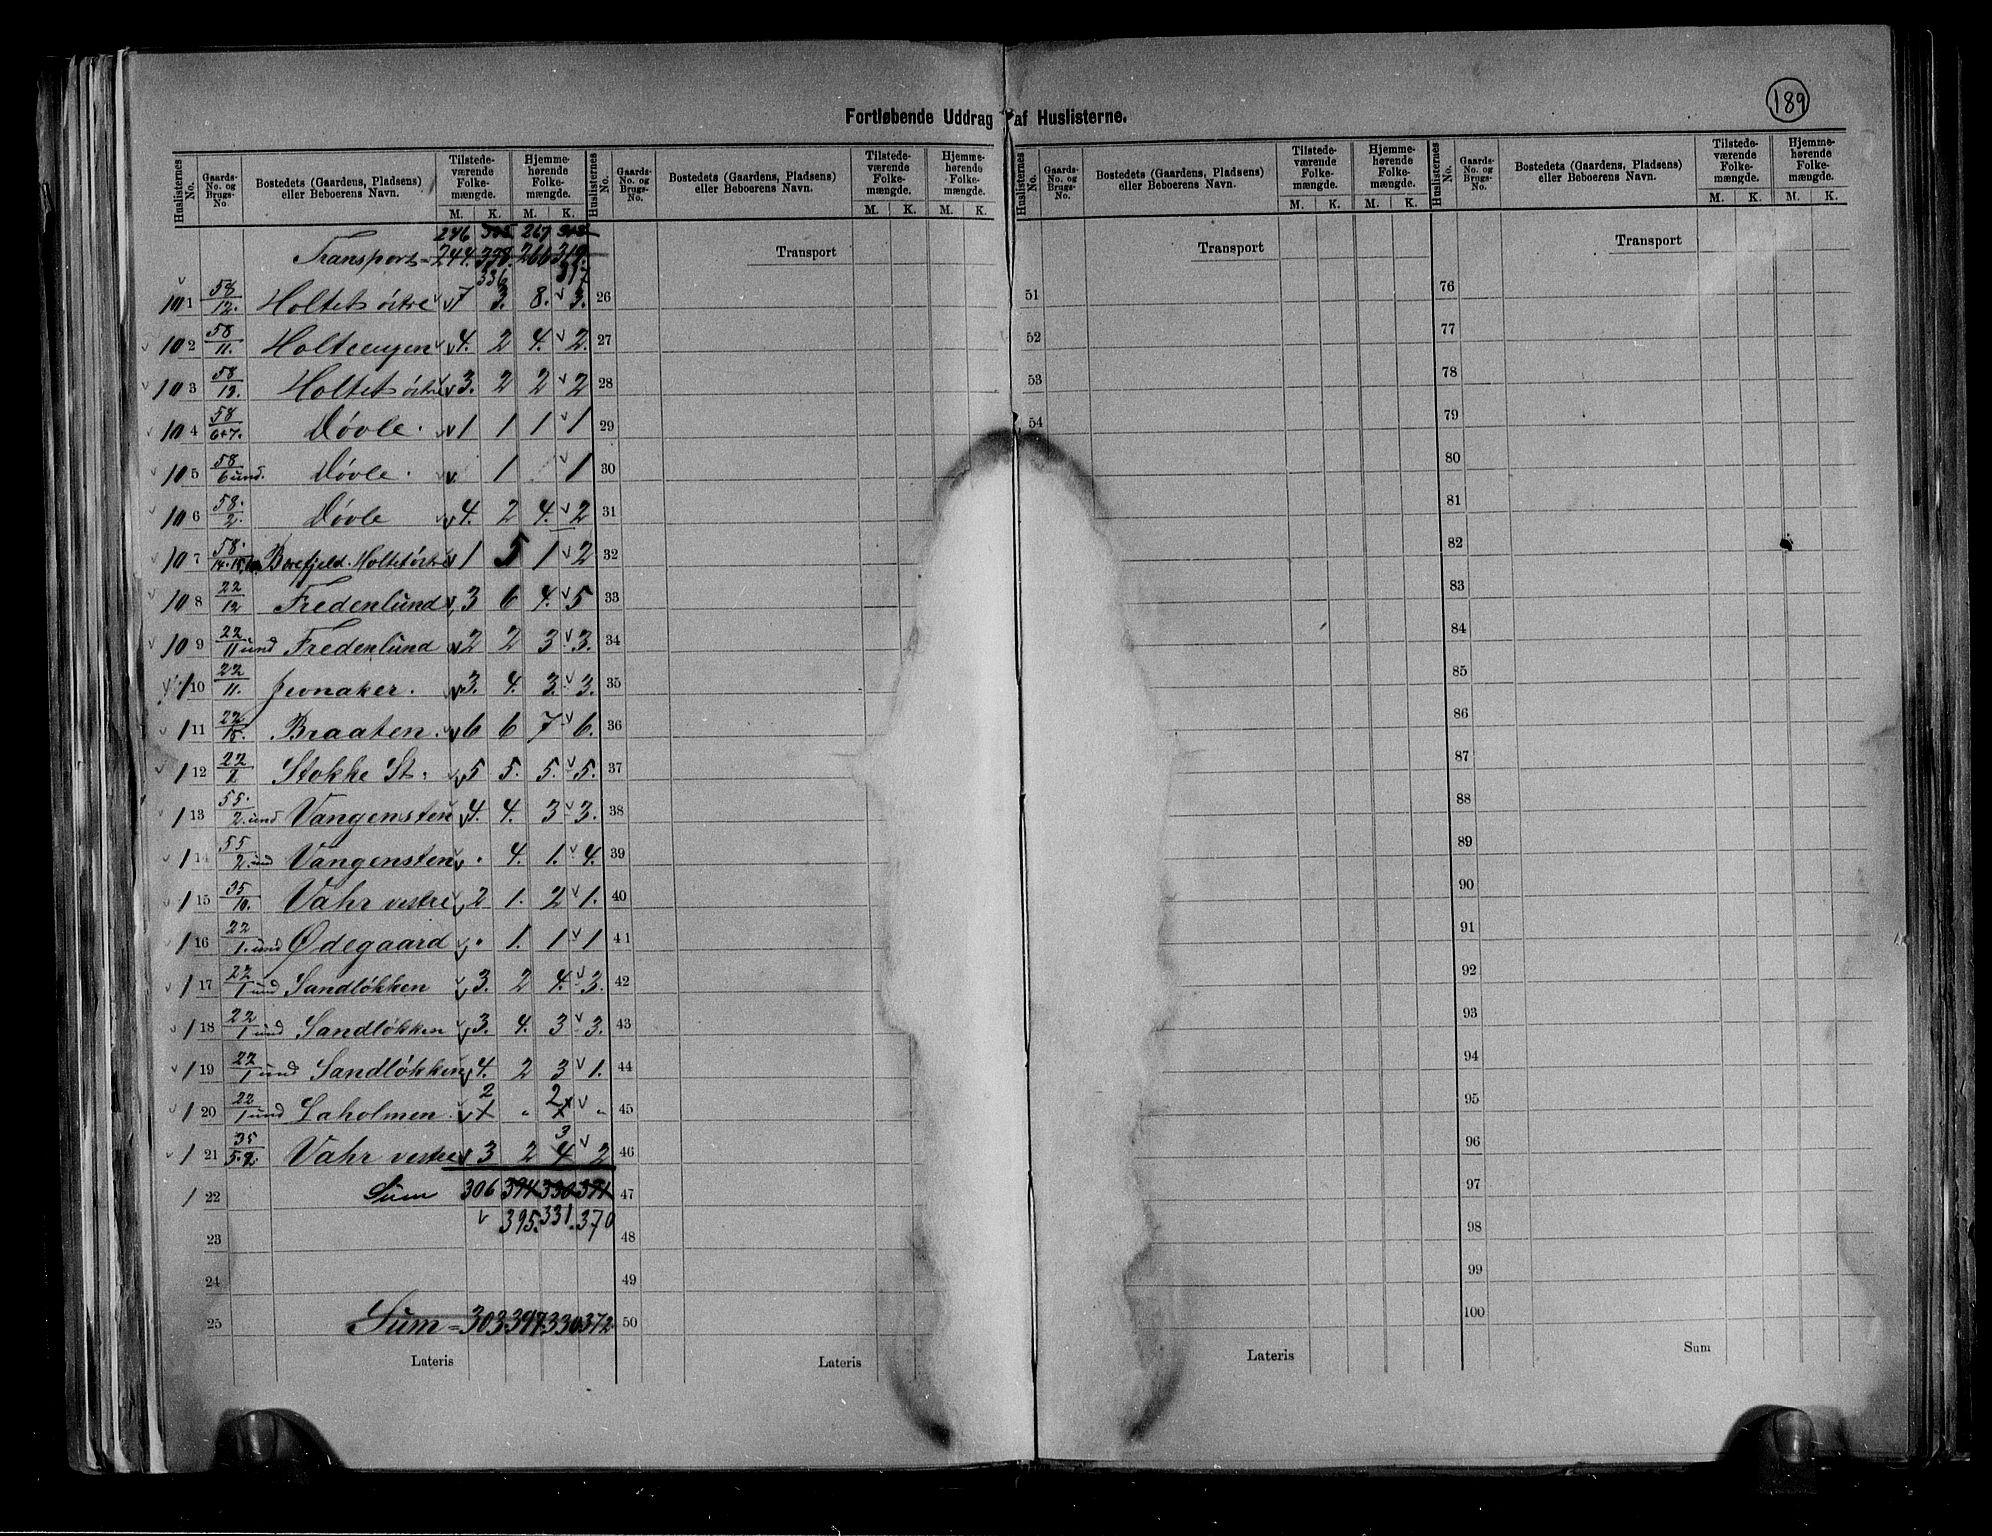 189
Fortløbende Uddrag af Huslisterne.
Huslisternes No. Gaards-No. og Brugs-No. Bostedets (Gaardens, Pladsens) eller Beboerens Navn. Tilstedeværende Folkemængde. M. K. Hjemmehørende Folkemængde. M. K.
Huslisternes No. Gaards-No. og Brugs-No. Bostedets (Gaardens, Pladsens) eller Beboerens Navn. Tilstedeværende Folkemængde. M. K. Hjemmehørende Folkemængde. M. K.
Huslisternes No. Gaards-No. og Brugs-No. Bostedets (Gaardens, Pladsens) eller Beboerens Navn. Tilstedeværende Folkemængde. M. K. Hjemmehørende Folkemængde. M. K.
Huslisternes No. Gaards-No. og Brugs-No. Bostedets (Gaardens, Pladsens) eller Beboerens Navn. Tilstedeværende Folkemængde. M. K. Hjemmehørende Folkemængde. M. K.
246 267
Transport = 244. 338. 266 319
336 317
101 58/12. Holtet østre 7 3. 8. 3.
102 58/11. Holteengen 4. 2 4. 2.
103 58/12. Holtet østre 3. 2 2 2
104 58/6+7. Døvle. 1 1 1 1
105 58/6 und. Døvle. 1 1
106 58./2. Døvle 4. 2 4. 2
107 58. Holtet østre 1 5 1 2
108 22/12 Fredenlund 3 6 4. 5
109 22/11 und Fredenlund 2 2 3 3.
110 22/11. Jevnaker. 3. 4. 3. 3.
111 22/15. Braaten. 6 6 7 6.
112 22 Stokke St. 5 5. 5. 5.
113 55./2. und Vangensten 4. 4. 3 3.
114 55/2. und Vangensten . 4. 1. 4.
115 35/10. Vahr vestre 2 1. 2 1.
116 22/1. und Ødegaard . 1. 1 1
117 22/1 und Sandløkken 3. 2 4. 3.
118 22/1 und Sandløkken 3. 4. 3 3.
119 22/1 und Sandløkken 4. 2 3 1.
120 22/1 und Laholmen. 2 " 2 "
3
121 35 Vahr vestre 3 2 4 2
122 Sum 306 394 330 371
395. 331. 370
23
24
25 Sum = 303 397. 330. 372
Lateris
Transport
26
27
28
29
30
31
32
33
34
35
36
37
38
39
40
41
42
43
44
45
46
47
48
49
50
Lateris
Transport
51
52
53
54
Lateris
Transport
76
77
78
79
80
81
82
83
84
85
86
87
88
89
90
91
92
93
94
95
96
97
98
99
100
Sum